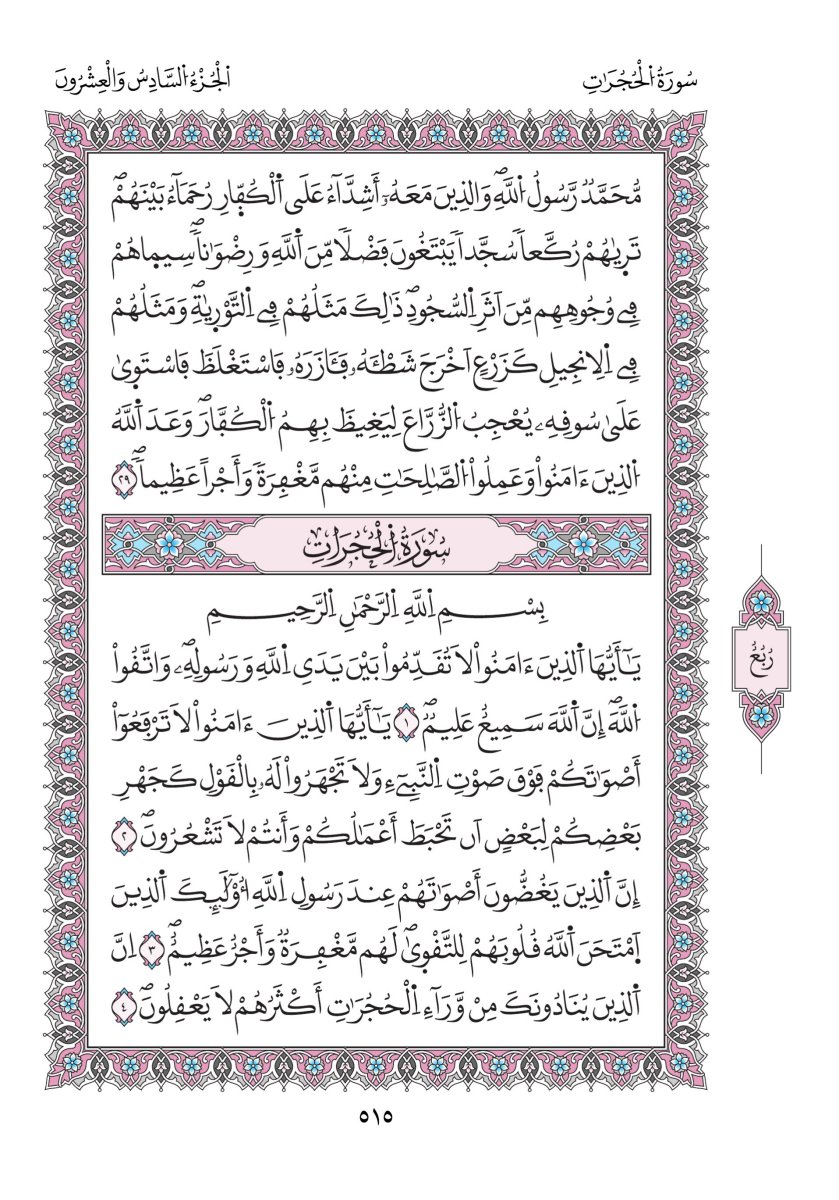 سُورَةُ اُ۬لْحُجُرَٰتِ
اَ۬لْجُزْءُ اُ۬لسَّادِسُ وَالْعِشْرُونَ
مُّحَمَّدٞ رَّسُولُ اُ۬للَّهِۖ وَالذِينَ مَعَهُۥٓ أَشِدَّآءُ عَلَي اَ۬لْكُفّ۪ارِ رُحَمَآءُ بَيْنَهُمْۖ
تَر۪يٰهُمْ رُكَّعاٗ سُجَّداٗ يَبْتَغُونَ فَضْلاٗ مِّنَ اَ۬للَّهِ وَرِضْوَٰناٗۖ سِيم۪اهُمْ
فِے وُجُوهِهِم مِّنَ اَثَرِ اِ۬لسُّجُودِۖ ذَٰلِكَ مَثَلُهُمْ فِے اِ۬لتَّوْر۪يٰةِۖ وَمَثَلُهُمْ
فِے اِ۬لِانجِيلِ كَزَرْعٍ اَخْرَجَ شَطْـَٔهُۥ فَـَٔازَرَهُۥ فَاسْتَغْلَظَ فَاسْتَو۪يٰ
عَلَيٰ سُوقِهِۦ يُعْجِبُ اُ۬لزُّرَّاعَ لِيَغِيظَ بِهِمُ اُ۬لْكُفَّارَۖ وَعَدَ اَ۬للَّهُ
اُ۬لذِينَ ءَامَنُواْ وَعَمِلُواْ اُ۬لصَّٰلِحَٰتِ مِنْهُم مَّغْفِرَةٗ وَأَجْراً عَظِيماٗۖ ٢٩
سُورَةُ اُ۬لْحُجُرَٰتِ
بِسْمِ اِ۬للَّهِ اِ۬لرَّحْمَٰنِ اِ۬لرَّحِيمِ
يَٰٓأَيُّهَا اَ۬لذِينَ ءَامَنُواْ لَا تُقَدِّمُواْ بَيْنَ يَدَيِ اِ۬للَّهِ وَرَسُولِهِۦۖ وَاتَّقُواْ
اُ۬للَّهَۖ إِنَّ اَ۬للَّهَ سَمِيعٌ عَلِيمٞۖ ١ يَٰٓأَيُّهَا اَ۬لذِينَ ءَامَنُواْ لَا تَرْفَعُوٓاْ
أَصْوَٰتَكُمْ فَوْقَ صَوْتِ اِ۬لنَّبِيٓءِ وَلَا تَجْهَرُواْ لَهُۥ بِالْقَوْلِ كَجَهْرِ
بَعْضِكُمْ لِبَعْضٍ اَن تَحْبَطَ أَعْمَٰلُكُمْ وَأَنتُمْ لَا تَشْعُرُونَۖ ٢
إِنَّ اَ۬لذِينَ يَغُضُّونَ أَصْوَٰتَهُمْ عِندَ رَسُولِ اِ۬للَّهِ أُوْلَٰٓئِكَ اَ۬لذِينَ
اَ۪مْتَحَنَ اَ۬للَّهُ قُلُوبَهُمْ لِلتَّقْو۪يٰۖ لَهُم مَّغْفِرَةٞ وَأَجْرٌ عَظِيمٌۖ ٣ اِنَّ
اَ۬لذِينَ يُنَادُونَكَ مِنْ وَّرَآءِ اِ۬لْحُجُرَٰتِ أَكْثَرُهُمْ لَا يَعْقِلُونَۖ ٤
رُبُعُ
٥١٥